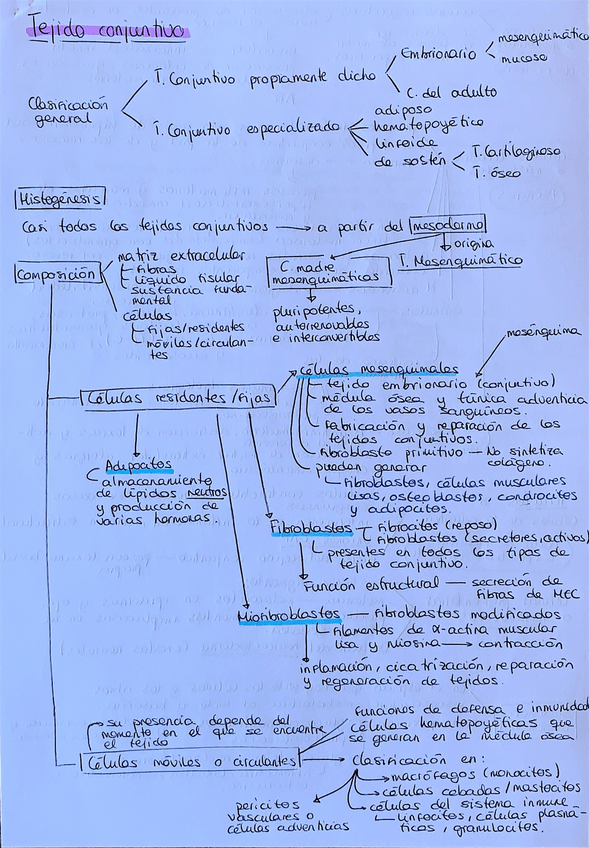 Tejido conjuntivo
Clasificación
general
T. Conjuntivo propiamente dicho
Embrionario
mesenquimático
mucoso
C. del adulto
T. Conjuntivo especializado
adiposo
hematopoyético
linfoide
de sostén
T. Cartilaginoso
T. óseo
Histogénesis
Casi todos los tejidos conjuntivos → a partir del mesodermo
origina
T. Mesenquimático
C. madre
mesenquimáticas
pluripotentes,
autorrenovables
e interconvertibles
Composición
matriz extracelular
Fibras
Líquido tisular
sustancia funda-
mental
células
Fijas/residentes
móviles/circulan-
tes
Células residentes/fijas
células mesenquimales
mesénquima
tejido embrionario (conjuntivo)
médula ósea y túnica adventicia
de los vasos sanguíneos.
Fabricación y reparación de los
tejidos conjuntivos.
Fibroblasto primitivo — No sintetiza
colágeno.
pueden generar
Fibroblastos, células musculares
lisas, osteoblastos, condrocitos
y adipocitos.
Adipocitos
almacenamiento
de lípidos neutros
y producción de
varias hormonas.
Fibroblastos
Fibrocitos (reposo)
Fibroblastos (secretores, activos)
presentes en todos los tipos de
tejido conjuntivo.
Función estructural — secreción de
fibras de MEC
Miofibroblastos — Fibroblastos modificados
Filamentos de α-actina muscular
lisa y miosina → contracción
inflamación, cicatrización, reparación
y regeneración de tejidos.
su presencia depende del
momento en el que se encuentre
el tejido
Células móviles o circulantes
Funciones de defensa e inmunidad
células hematopoyéticas que
se generan en la médula ósea
clasificación en:
macrófagos (monocitos)
células cebadas/mastocitos
células del sistema inmune
linfocitos, células plasmá-
ticas, granulocitos.
pericitos
vasculares o
células adventicias